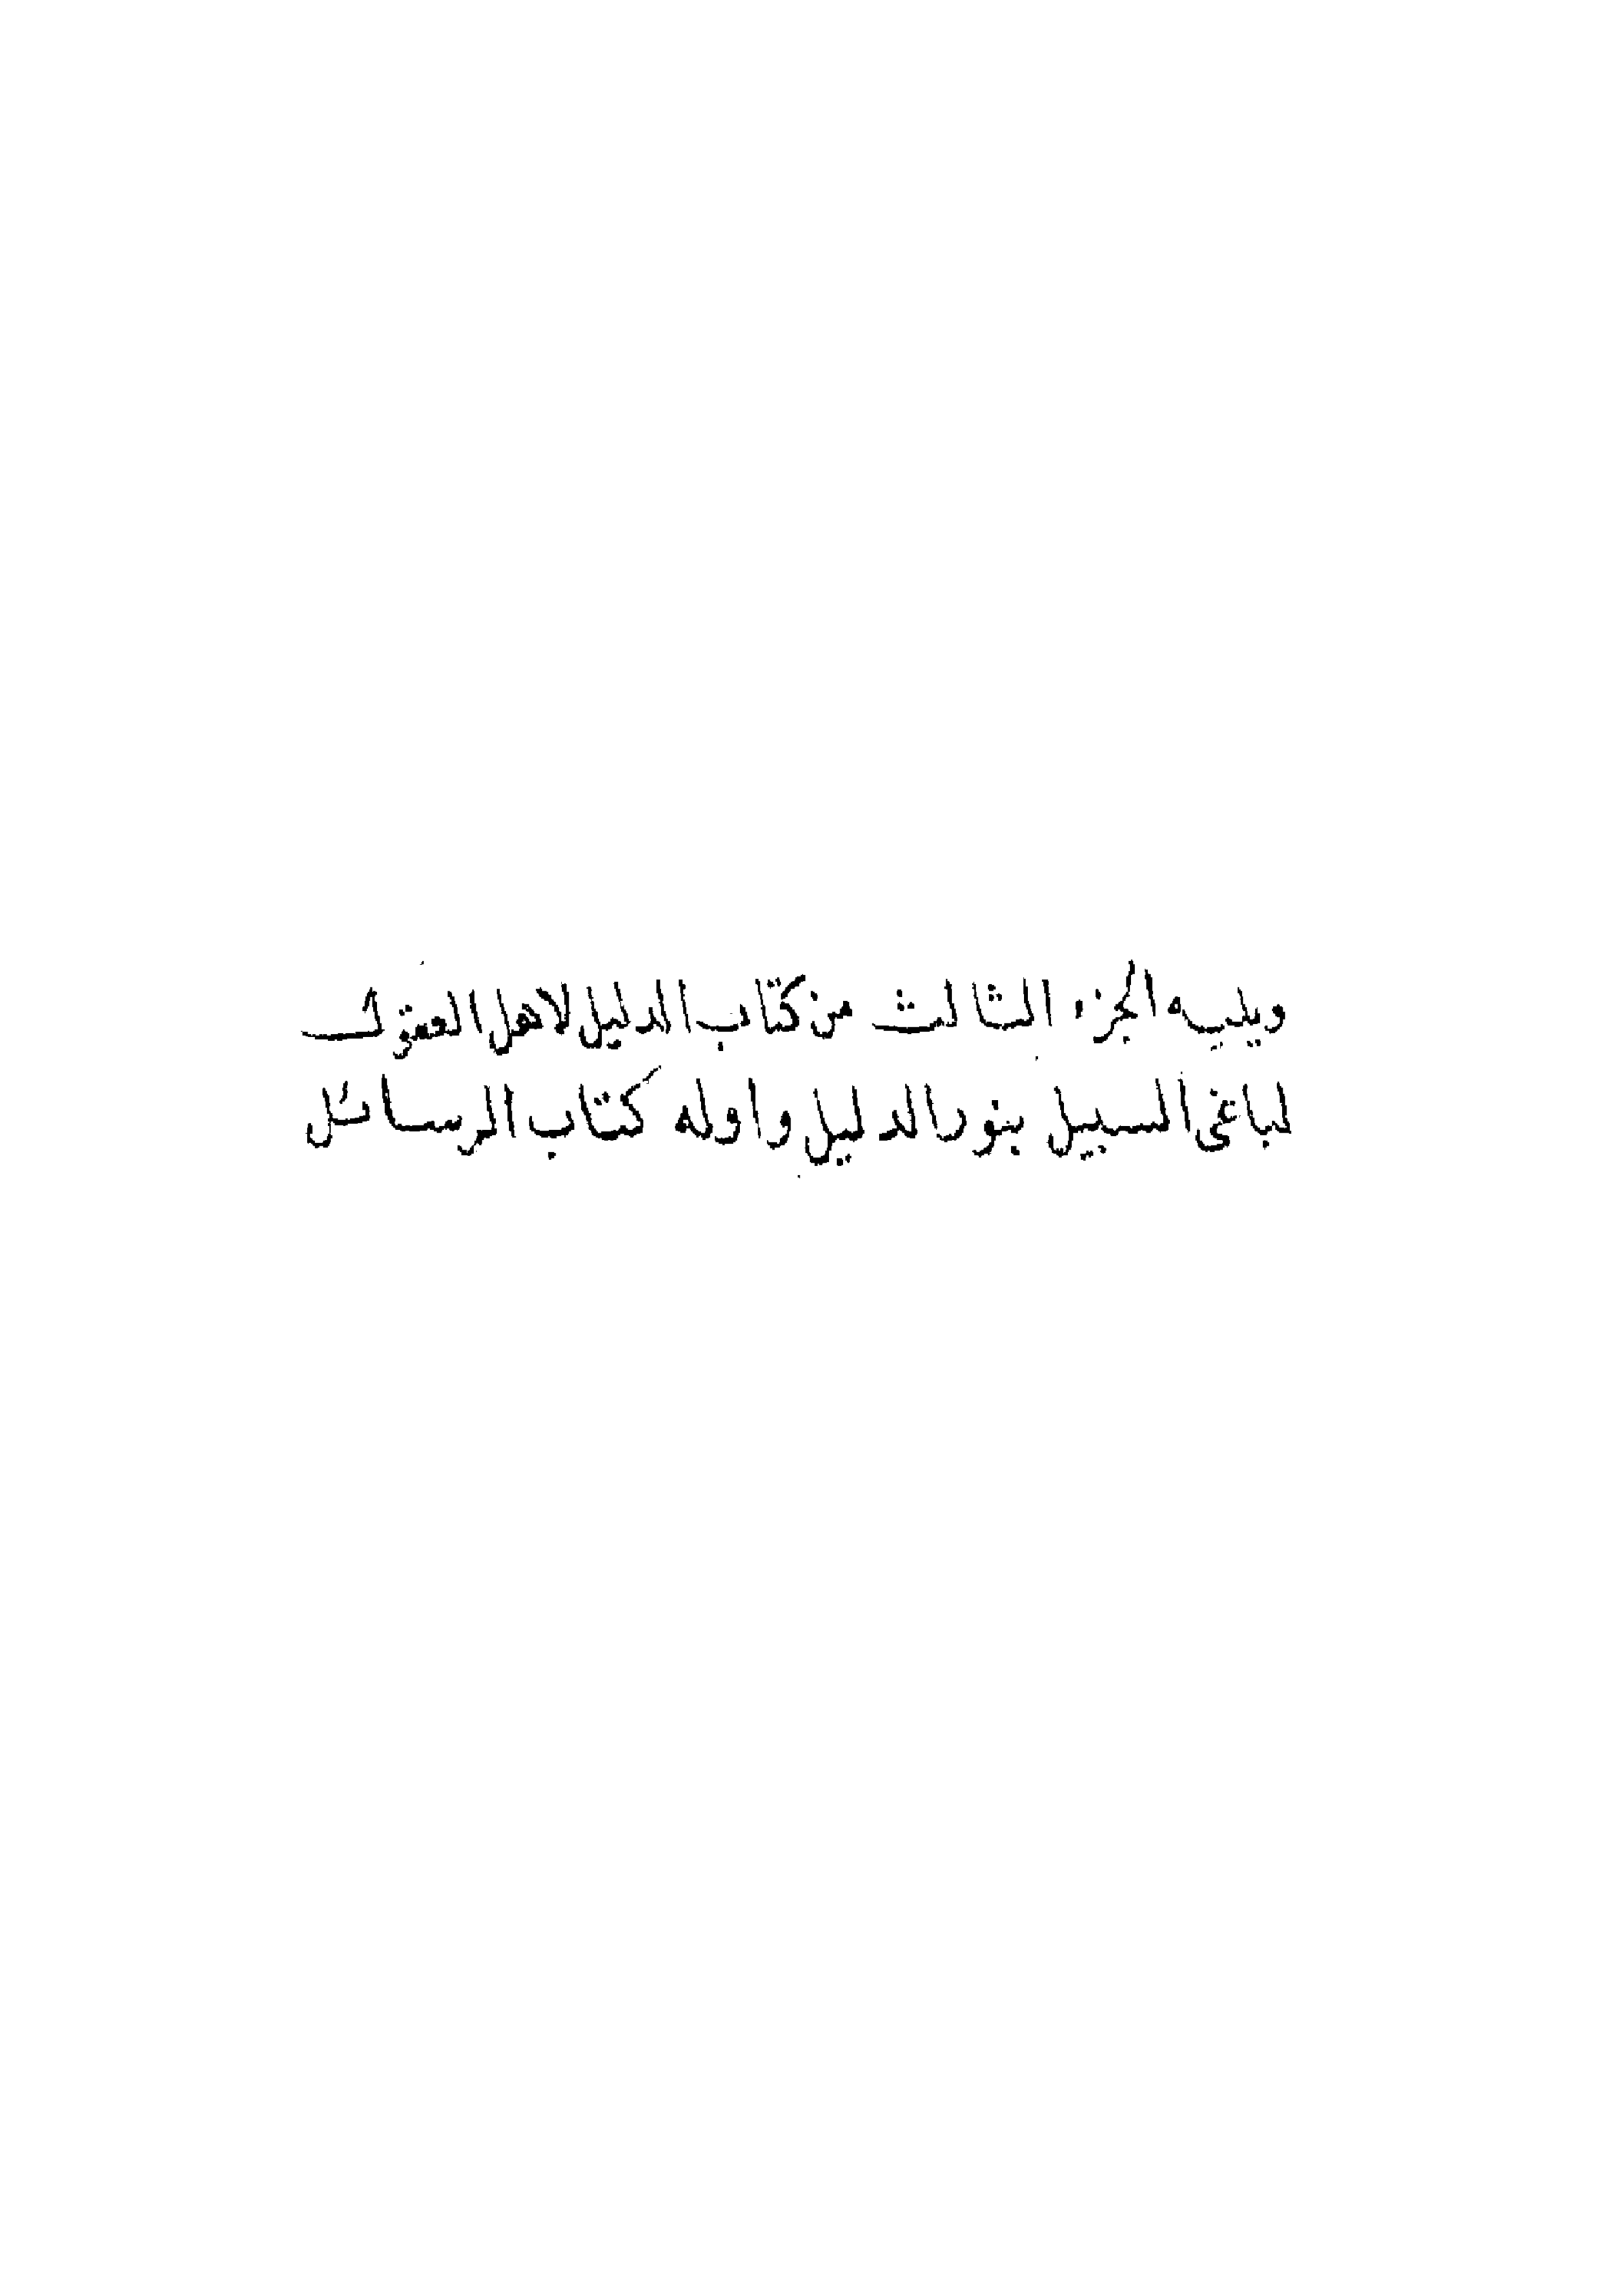 ويليه الجزء الثالث من كتاب الدليل لاهل العقول
لباغى السبيل بنور الدليل واوله كتاب الرسائل